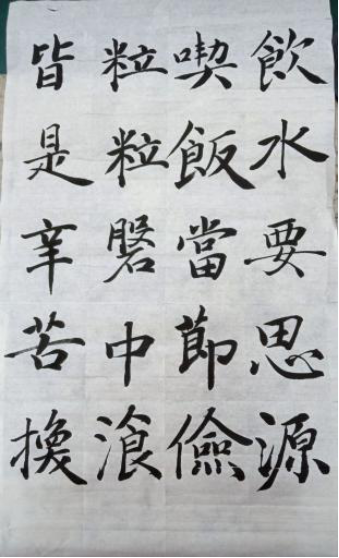 飲水要思源
喫飯當節儉
粒粒磐中湌
皆是辛苦換